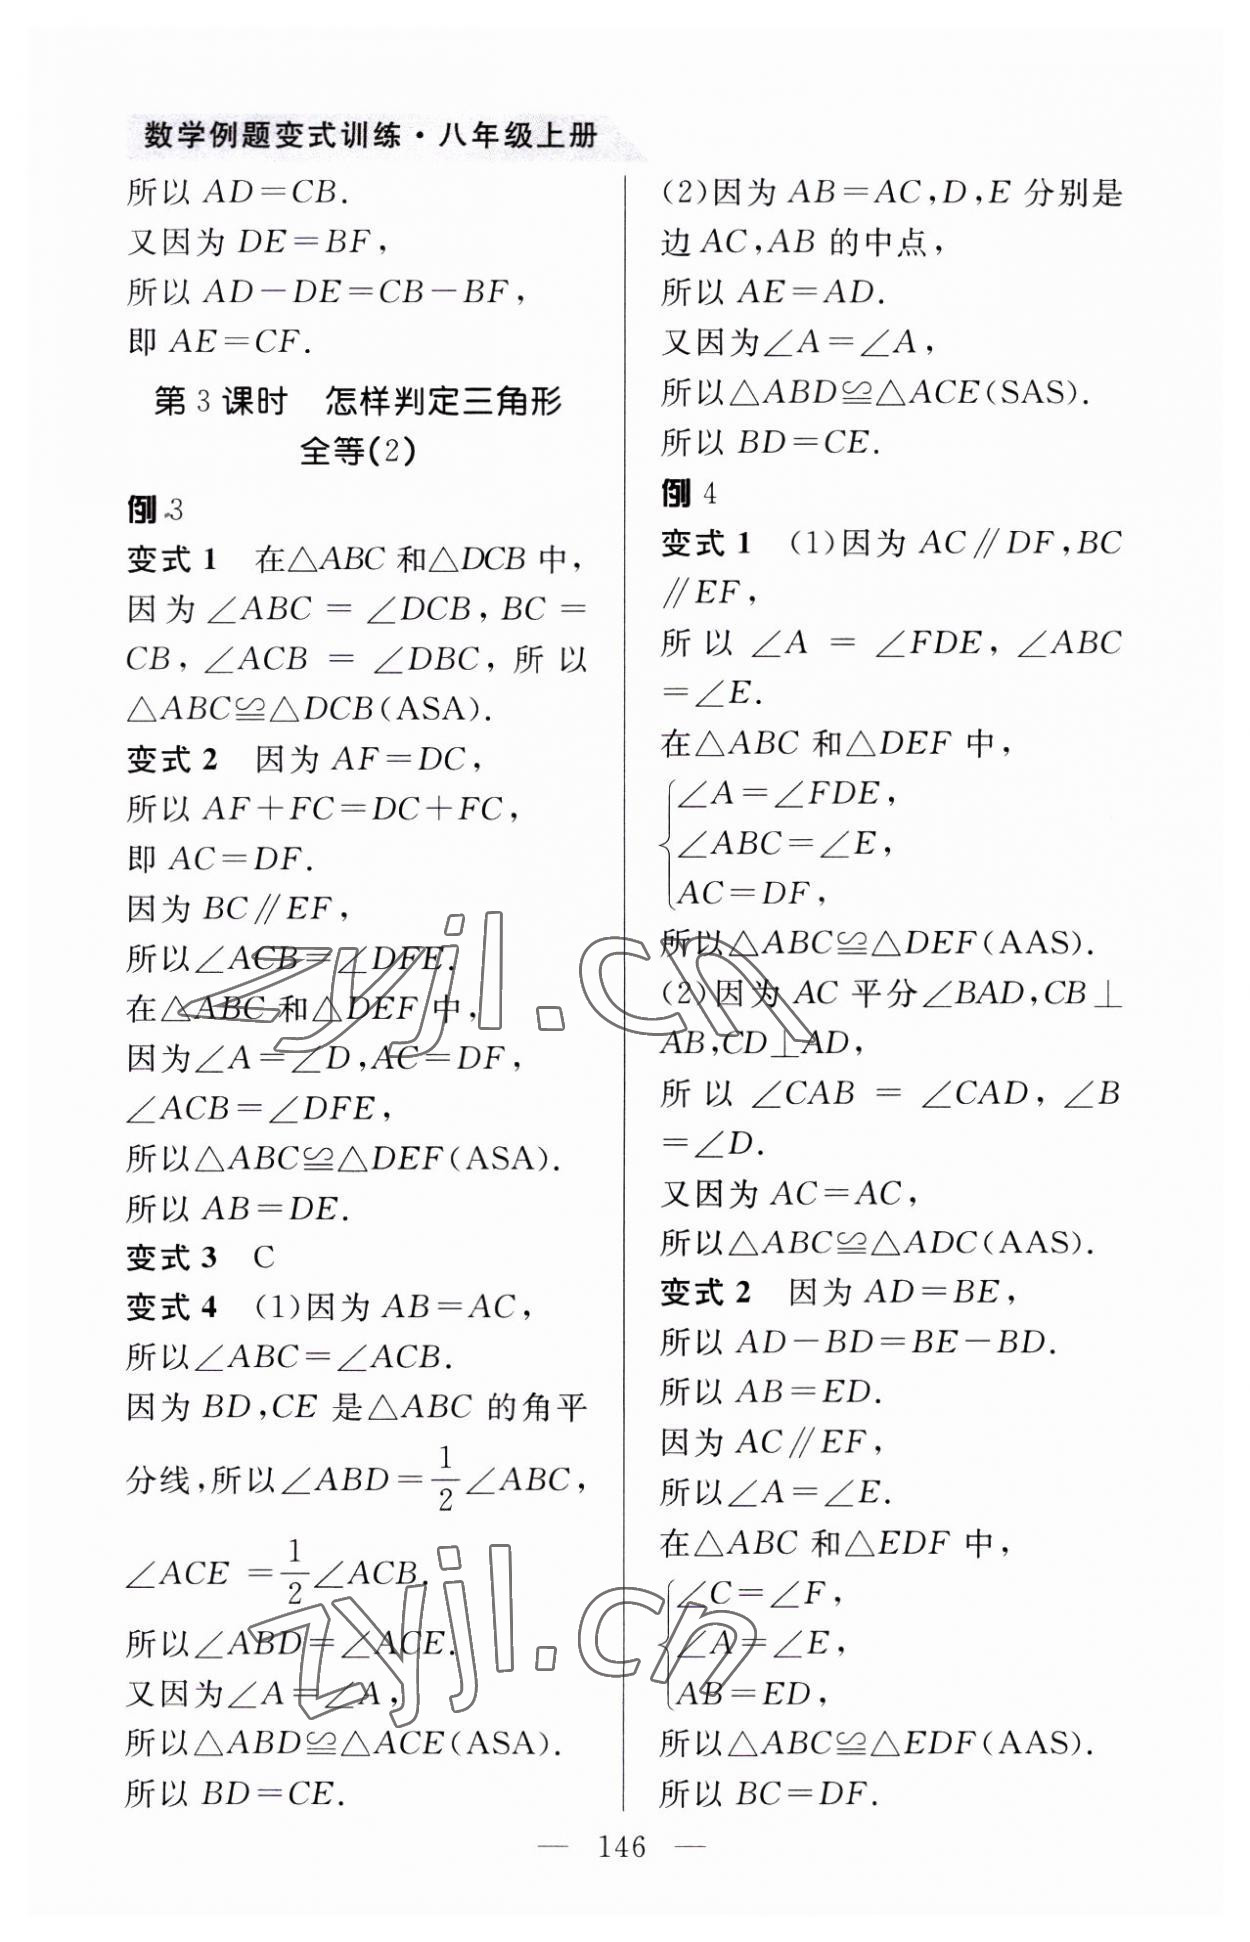 数学例题变式训练·八年级上册
所以 AD=CB.
又因为 DE=BF,
所以 AD-DE=CB-BF,
即 AE=CF.
第 3 课时　怎样判定三角形
全等(2)
例 3
变式 1　在△ABC 和△DCB 中,
因为∠ABC = ∠DCB, BC =
CB, ∠ACB = ∠DBC, 所以
△ABC≌△DCB(ASA).
变式 2　因为 AF=DC,
所以 AF+FC=DC+FC,
即 AC=DF.
因为 BC∥EF,
所以∠ACB=∠DFE.
在△ABC 和△DEF 中,
因为∠A=∠D,AC=DF,
∠ACB=∠DFE,
所以△ABC≌△DEF(ASA).
所以 AB=DE.
变式 3　C
变式 4　(1)因为 AB=AC,
所以∠ABC=∠ACB.
因为 BD,CE 是△ABC 的角平
分线,所以∠ABD=1/2∠ABC,
∠ACE =1/2∠ACB.
所以∠ABD=∠ACE.
又因为∠A=∠A,
所以△ABD≌△ACE(ASA).
所以 BD=CE.
(2)因为 AB=AC,D,E 分别是
边 AC,AB 的中点,
所以 AE=AD.
又因为∠A=∠A,
所以△ABD≌△ACE(SAS).
所以 BD=CE.
例 4
变式 1　(1)因为 AC∥DF,BC
∥EF,
所以 ∠A = ∠FDE, ∠ABC
=∠E.
在△ABC 和△DEF 中,
∠A=∠FDE,
∠ABC=∠E,
AC=DF,
所以△ABC≌△DEF(AAS).
(2)因为 AC 平分∠BAD,CB⊥
AB,CD⊥AD,
所以 ∠CAB = ∠CAD, ∠B
=∠D.
又因为 AC=AC,
所以△ABC≌△ADC(AAS).
变式 2　因为 AD=BE,
所以 AD-BD=BE-BD.
所以 AB=ED.
因为 AC∥EF,
所以∠A=∠E.
在△ABC 和△EDF 中,
∠C=∠F,
∠A=∠E,
AB=ED,
所以△ABC≌△EDF(AAS).
所以 BC=DF.
— 146 —
zyjl.cn
zyjl.cn